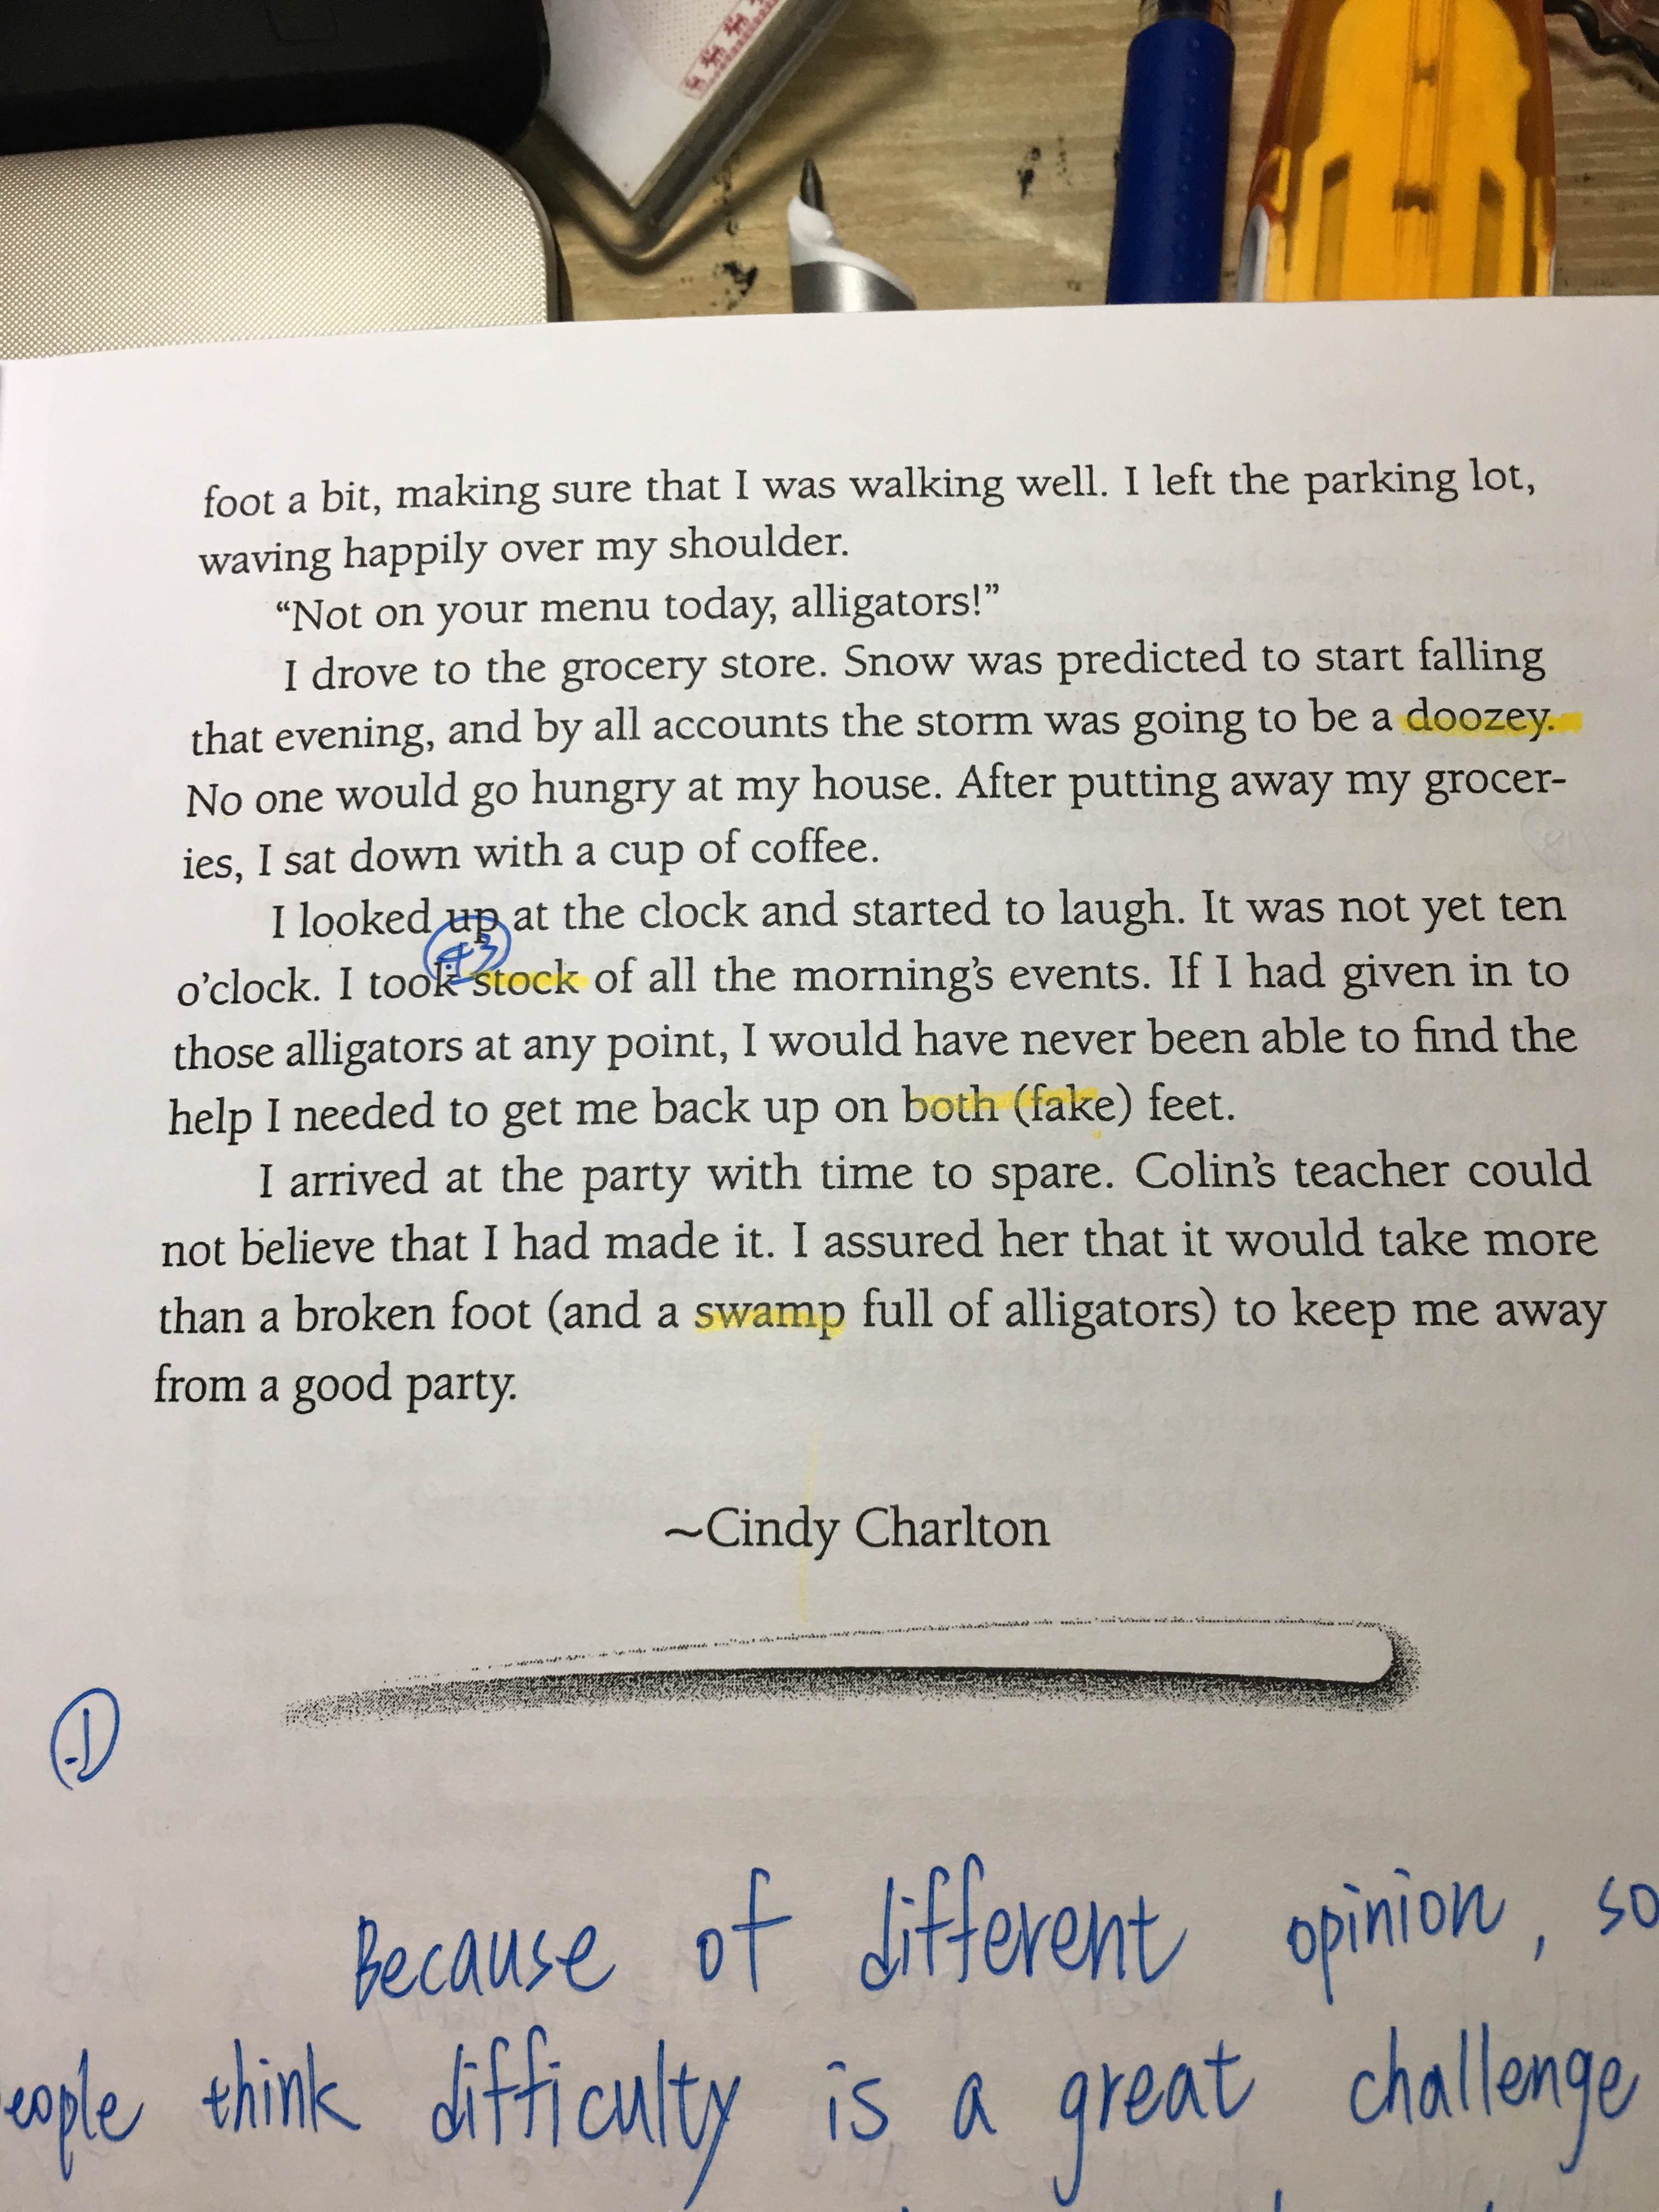 foot a bit, making sure that I was walking well. I left the parking lot,
waving happily over my shoulder.
“Not on your menu today, alligators!”
I drove to the grocery store. Snow was predicted to start falling
that evening, and by all accounts the storm was going to be a doozey.
No one would go hungry at my house. After putting away my grocer-
ies, I sat down with a cup of coffee.
I looked up at the clock and started to laugh. It was not yet ten
o’clock. I took stock of all the morning’s events. If I had given in to
those alligators at any point, I would have never been able to find the
help I needed to get me back up on both (fake) feet.
I arrived at the party with time to spare. Colin’s teacher could
not believe that I had made it. I assured her that it would take more
than a broken foot (and a swamp full of alligators) to keep me away
from a good party.
~Cindy Charlton
Because of different opinion, so
eople think difficulty is a great challenge